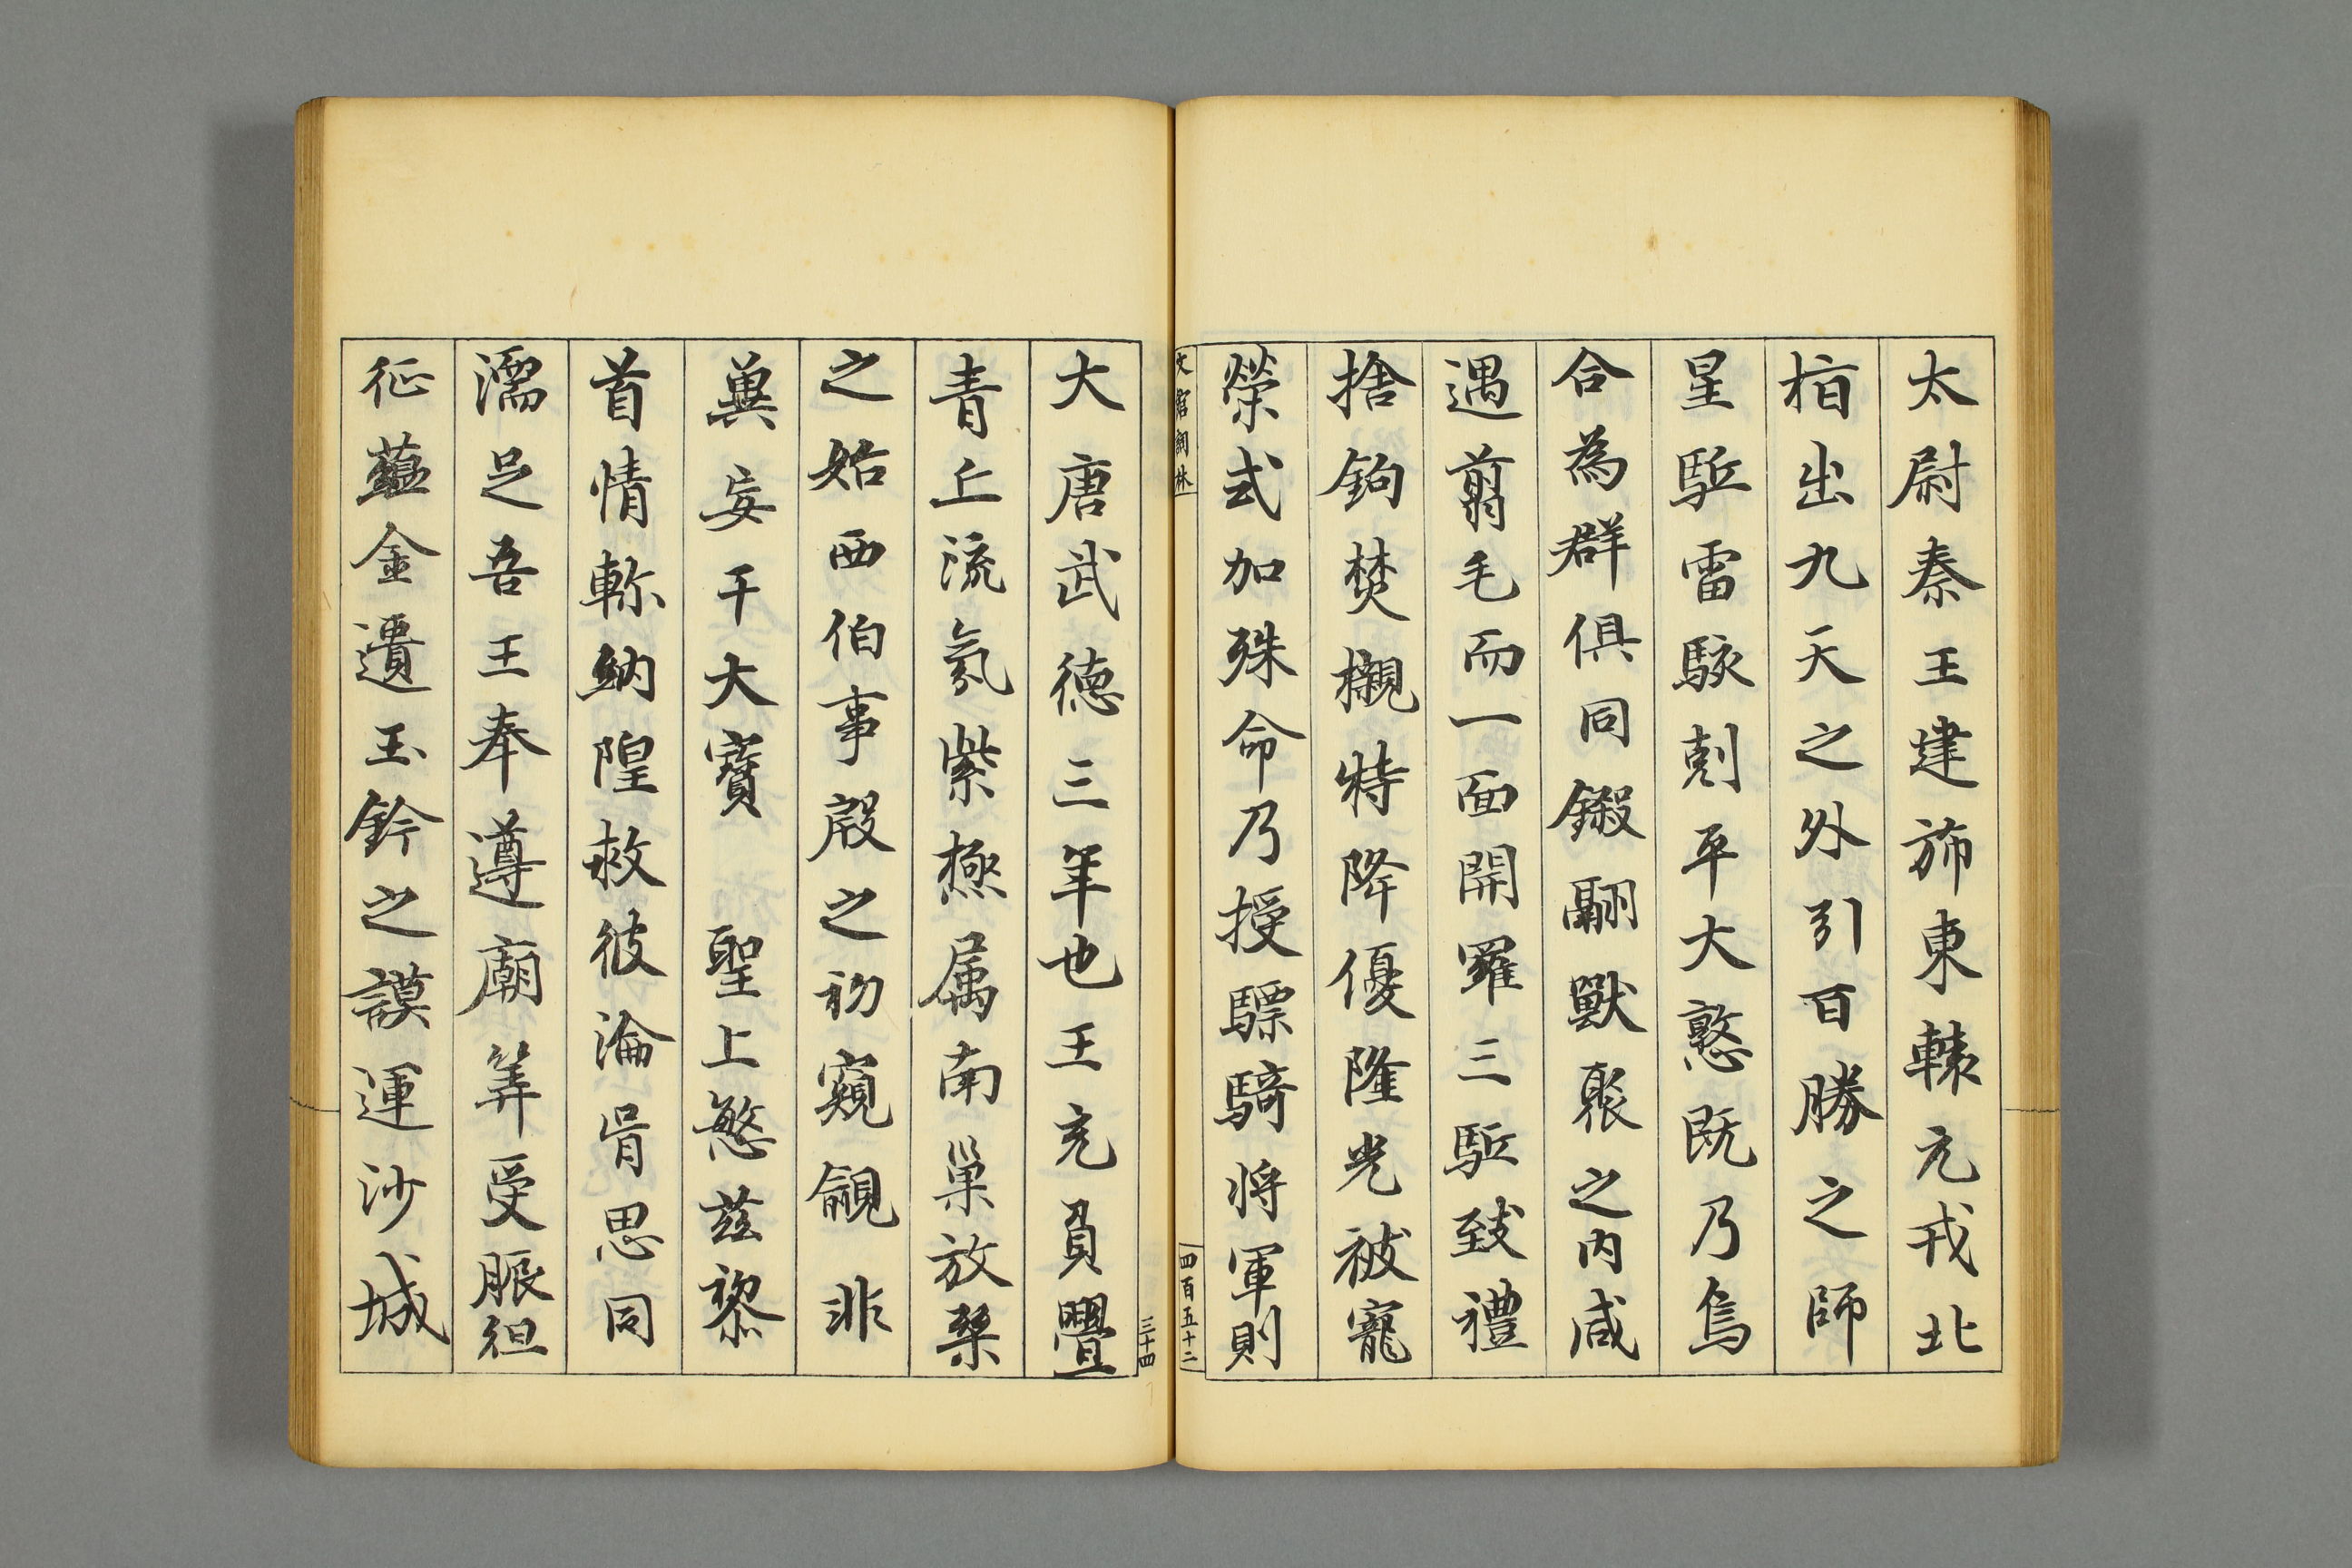 太尉秦王建旆東轅元戎北
指出九天之外引百勝之師
星駈雷駭剋平大憝既乃鳥
合為群俱同鎩翮獸聚之内咸
遇翦毛而一面開羅三駈致禮
捨鉤焚櫬特降優隆光被寵
榮式加殊命乃授驃騎將軍則
文館詞林
四百五十二
三十四
大唐武德三年也王充負舋
青丘流氛紫極属南巢放桀
之始西伯事殷之初窺覦非
冀妄干大寶 聖上慜茲黎
首情軫納隍救彼淪胥思同
濡足吾王奉遵廟筭受脤徂
征蘊金遺玉鈐之謨運沙城